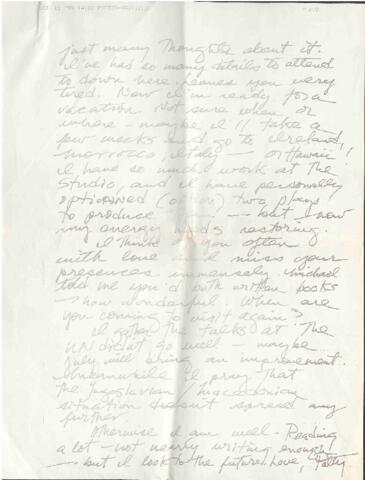 just many thoughts about it.
I've had so many details to attend
to down here. Leaves you very
tired. Now I'm ready for a
vacation. Not sure when or
where — maybe I'll take a
few weeks and go to Ireland,
Morrocco, Italy — or Hawaii!
I have so much work at the
studio, and I have personally
optioned two plays
to produce — but I know
my energy needs restoring.
I think of you often
with love and miss your
presences immensely. Michael
told me you'd both written books
— how wonderful. When are
you coming to visit again?
I gather the talks at the
UN didn't go well — maybe
July will bring an improvement.
Meanwhile I pray that
the Yugoslavian / Macedonian
situation doesn't spread any
further.
Otherwise I am well. Reading
a lot — not nearly writing enough
— but I look to the future. Love, Patty